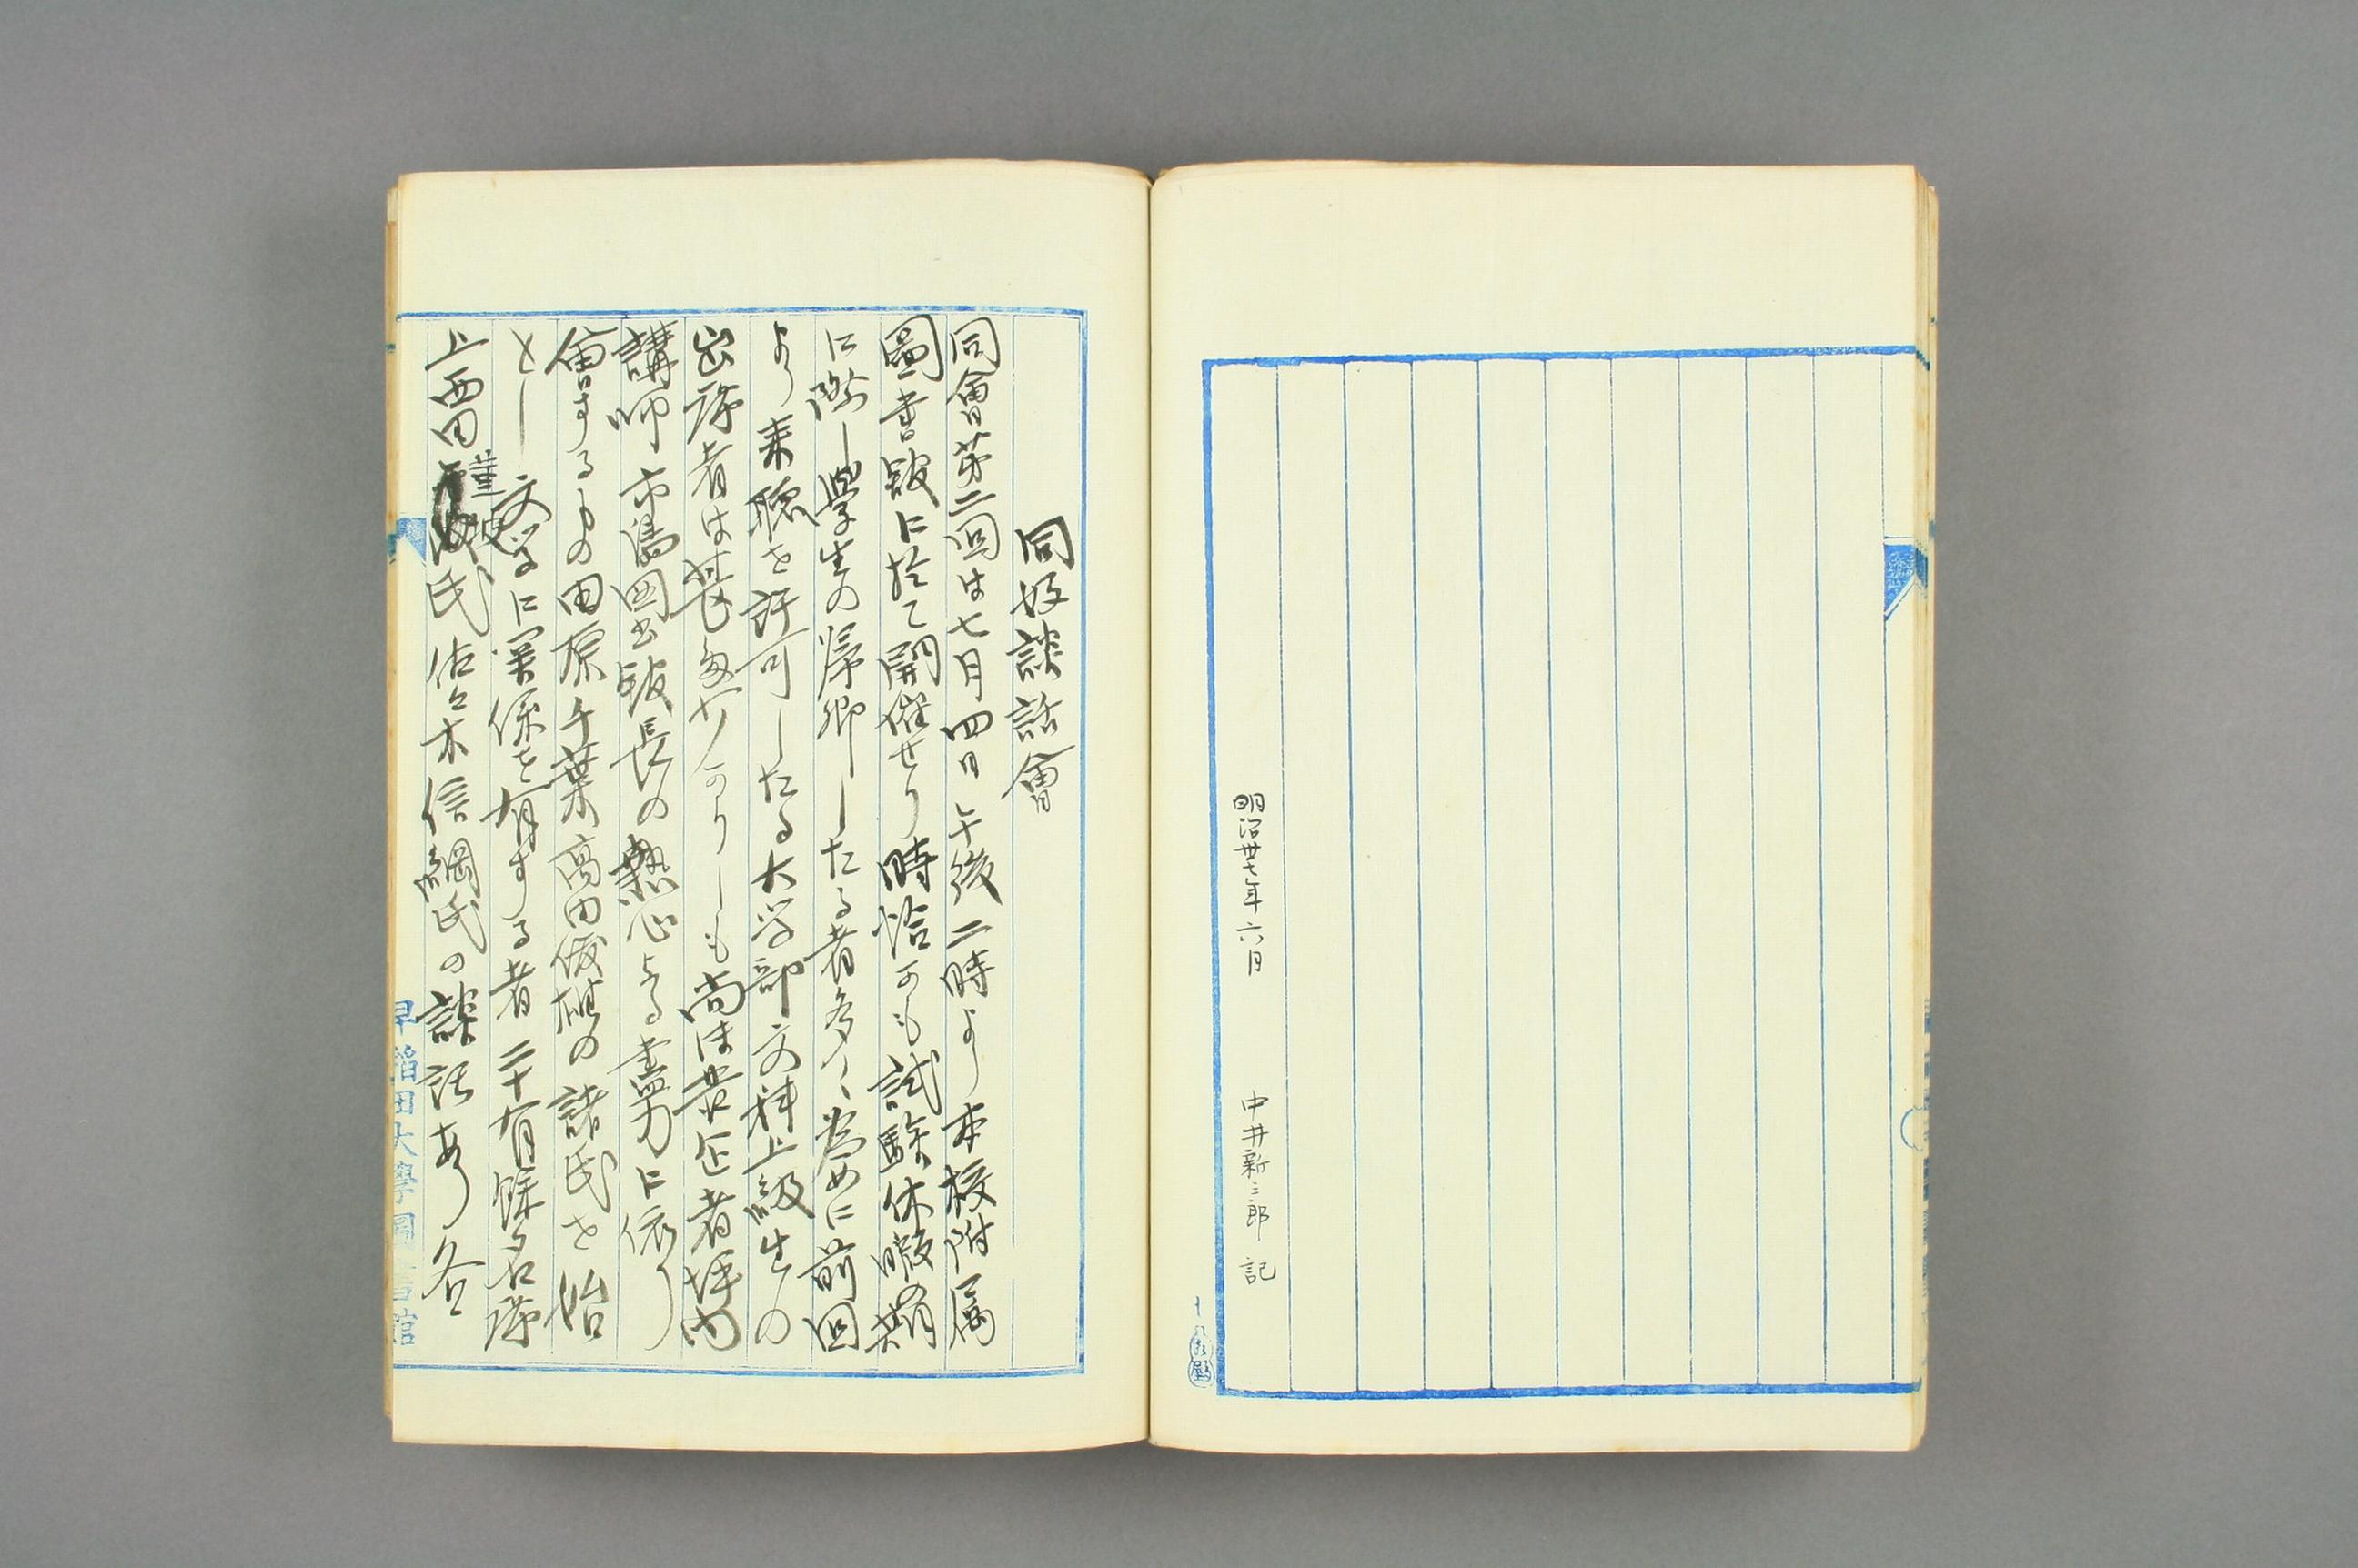 明治卅七年六月 中井新三郎 記
同好談話會
同會第二回は七月四日午後二時より本校附属
圖書館に於て開催せり時恰かも試験休暇
に際し學生の帰郷したる者多く為めに前回
より来聴を許可したる大学部文科上級生の
出席者は甚多少かりしも尚ほ發企者坪内
講師市嶋図書館長の熱心なる盡力に依り
會するもの田原千葉高田俊雄の諸氏を始
とし文学に関係を有する者二十有餘名席
上西田氏佐々木信綱氏の談話あり各
早稲田大學圖書館